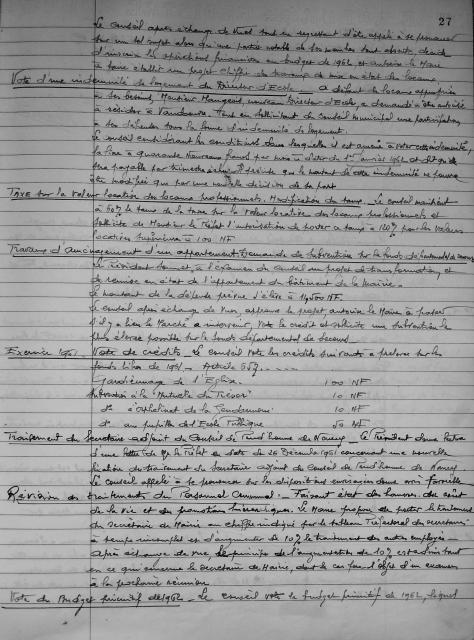 27
Le Conseil après échange de vues tout en regrettant d'être appelé à se prononcer
sur un tel sujet alors qu'une partie notable de ses membres sont absents, décide
d'inscrire les opérations financières au budget de 1962 et autorise le Maire
à faire établir un projet chiffré des travaux de mise en état de locaux.
Vote d'une indemnité de logement du Directeur d'Ecole. - A défaut de locaux appropriés
à ses besoins, Monsieur Mangeot, nouveau Directeur d'Ecole, a demandé à être autorisé
à résider à Vandoeuvre. Tout en sollicitant du Conseil municipal une participation
à ses dépenses sous la forme d'indemnité de logement.
Le Conseil considérant les conditions dans lesquelles il est amené à voter cette indemnité,
la fixe à quarante Nouveaux francs par mois à dater du 1er janvier 1962 et
payable par trimestre échu. Il précise que le montant de cette indemnité ne pourra
être modifié que par une nouvelle décision de sa part
Taxe sur la valeur locative des locaux professionnels. Modification du taux. Le Conseil maintient
à 60% le taux de la taxe sur la valeur locative des locaux professionnels et
sollicite de Monsieur le Préfet l'autorisation de porter ce taux à 120% pour les valeurs
locatives supérieures à 100 NF
Travaux d'aménagement d'un appartement. Demande de subvention sur le fonds départemental de secours
Le Président soumet à l'examen du Conseil un projet de transformation et
de remise en état de l'appartement du bâtiment de la Mairie.
Le montant de la dépense prévue s'élève à NF.
Le Conseil après échange de vues, approuve le projet autorise le Maire à passer
s'il y a lieu le Marché à intervenir, vote le crédit et sollicite une subvention la
plus élevée possible sur le fonds départemental de secours.
Exercice 1961. Vote de crédits. Le Conseil vote les crédits suivants à prélever sur les
fonds libres de 1961 - Article
Gardiennage de l'Eglise. 100 NF
Subvention à la Mutuelle du Trésor 10 NF
d° à l'orphelinat de la Gendarmerie 10 NF
d° aux pupilles de l'Ecole Publique 50 NF
Traitement du Secrétaire adjoint du Conseil de Prud'homme de Nancy. Le Président donne lecture
d'une lettre de Mr le Préfet en date de 26 Décembre 1961 concernant une nouvelle
fixation du traitement du Secrétaire adjoint du Conseil de Prud'homme de Nancy.
Le Conseil appelé à se prononcer sur les dispositions envisagées donne avis favorable
Révision des traitements du Personnel Communal. - Faisant état des hausses du coût
de la vie et des promotions hiérarchiques, le Maire propose de porter le traitement
du secrétaire de Mairie au chiffre indiqué par le tableau Préfectoral des secrétaires
à temps incomplet et d'augmenter de 10% le traitement des autres employés
Après échange de vues le principe de l'augmentation de 10% est admis sauf
en ce qui concerne le secrétaire de Mairie, dont le cas fera l'objet d'un examen
à la prochaine réunion
Vote du Budget primitif de 1962. - Le Conseil vote le budget primitif de 1962, lequel